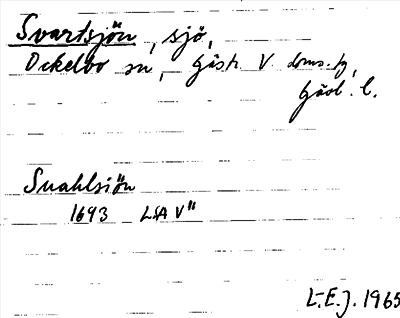 Svartsjön, sjö,
Ockelbo sn, Gästr. V. doms. tg,
Gävl. l.
Suahlsiön
1693 LSA V"
L.E.J. 1965